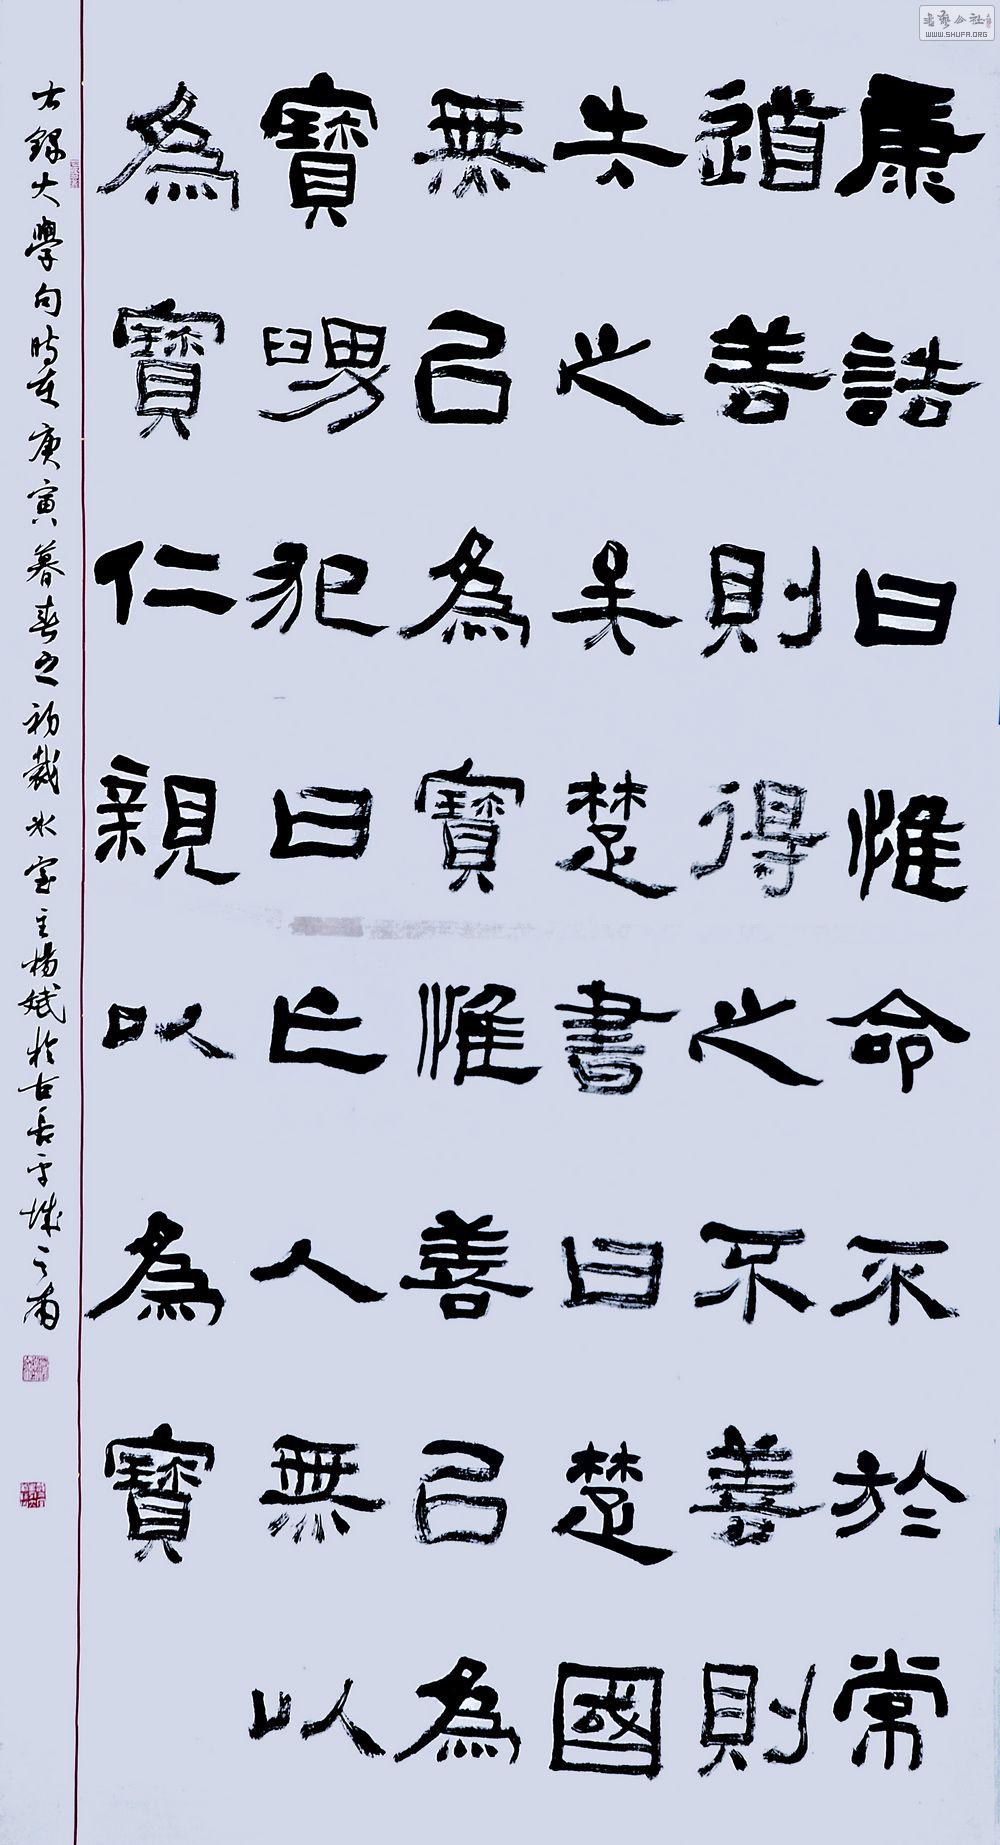 康誥曰惟命不於常
道善則得之不善則
失之矣楚書曰楚國
無㠯為寶惟善㠯為
寶舅犯曰亡人無以
為寶仁親以為寶
右錄大學句時在庚寅暮春之初裁冰室主楊斌於古長平城之南
書藝公社
WWW.SHUFA.ORG